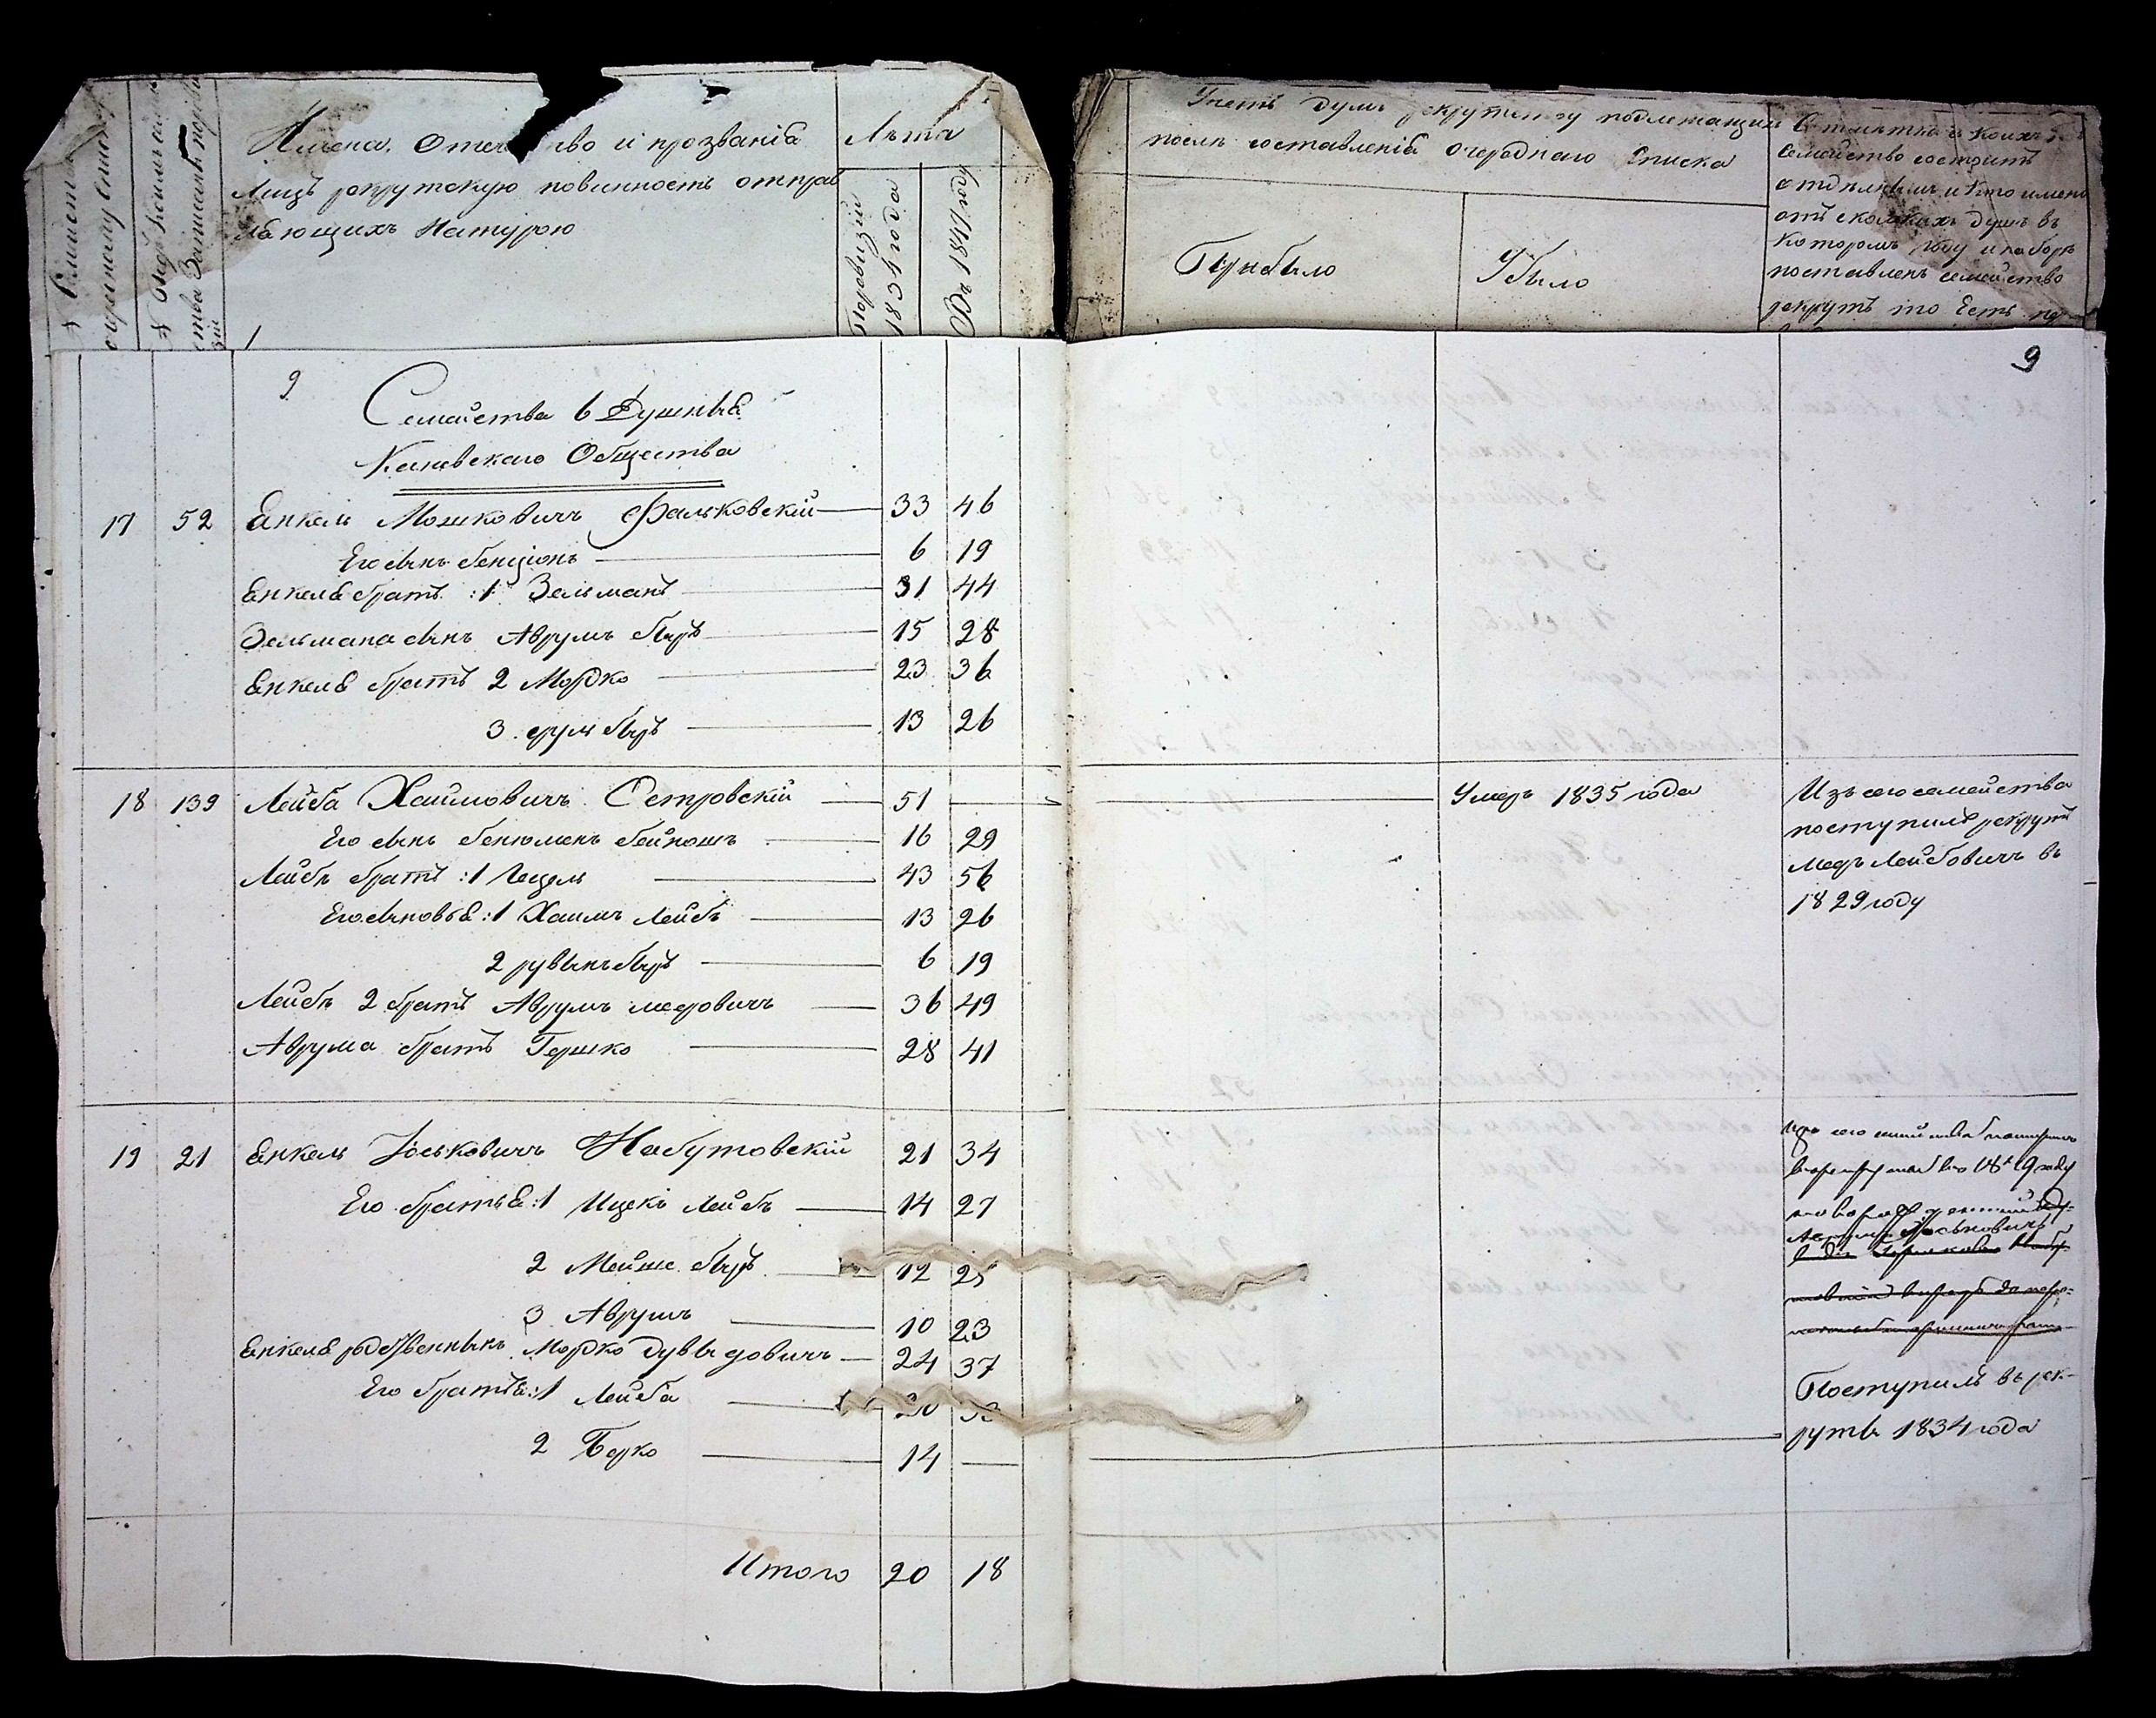 Имена, Отечество и прозванія
Лицъ рекрутскую повинность отправ
ляющихъ Натурою
Лѣта
По ревизіи 1834 года
Въ 1847 году
Счетъ душъ рекрутству подлежащимъ
послѣ составленія очереднаго Списка
Прибыло
Убыло
семейство состоитъ
отъ сколькихъ душъ въ
которомъ году и наборѣ
поставленъ семейство
рекрутъ то Есть
9
9
Семейства 6 Душныя
Каневскаго Общества
17 52 Енкель Мошковичъ Фальковскій 33 46
Его сынъ бенціонъ 6 19
Енкеля братъ :1 Зельманъ 31 44
Зельмана сынъ Аврумъ беръ 15 28
Енкеля братъ 2 Мордко 23 36
3 срул беръ 13 26
18 139 Лейба Хаимовичъ Сетровскій 51 Умеръ 1835 года
Его сынъ бенюменъ бейношъ 16 29
Лейбы братъ :1 Гецель 43 56
Его сыновья :1 Хаимъ Лейбъ 13 26
2 рувынъ беръ 6 19
Лейбы 2 братъ Аврумъ меровичъ 36 49
Аврума братъ Гершко 28 41
Изъ сего семейства
поступилъ рекрутъ
меръ Лейбовичъ въ
1829 году
19 21 Енкель Іоськовичъ Набутовскій 21 34
Его братья :1 Ицекъ Лейбъ 14 27
2 Мейше беръ 12 25
3 Аврумъ 10 23
Енкеля родственникъ Мордко дувыдовичъ 24 37
Его братья :1 Лейба
2 Берко 14
Поступилъ въ рек-
руты 1834 года
Итого 20 18